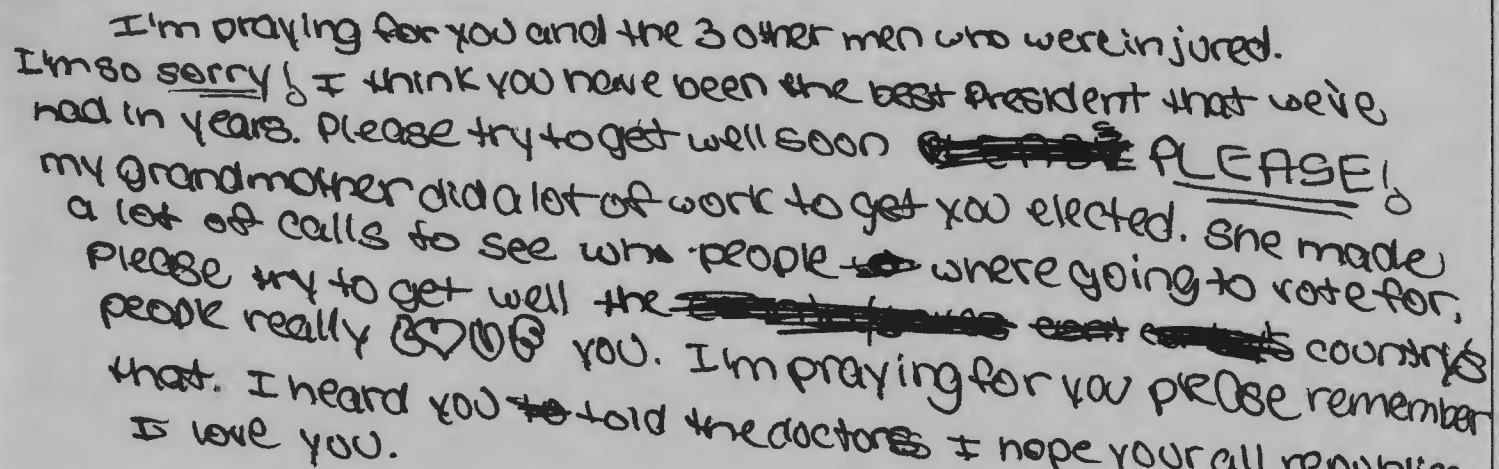 I'm praying for you and the 3 other men who were injured.
I'm so sorry! I think you have been the best President that we've
had in years. Please try to get well soon PLEASE!
my Grandmother did a lot of work to get you elected. She made
a lot of calls to see who people where going to vote for,
Please try to get well the country's
people really LOVE you. I'm praying for you please remember
that. I heard you told the doctors I hope your all
I love you.